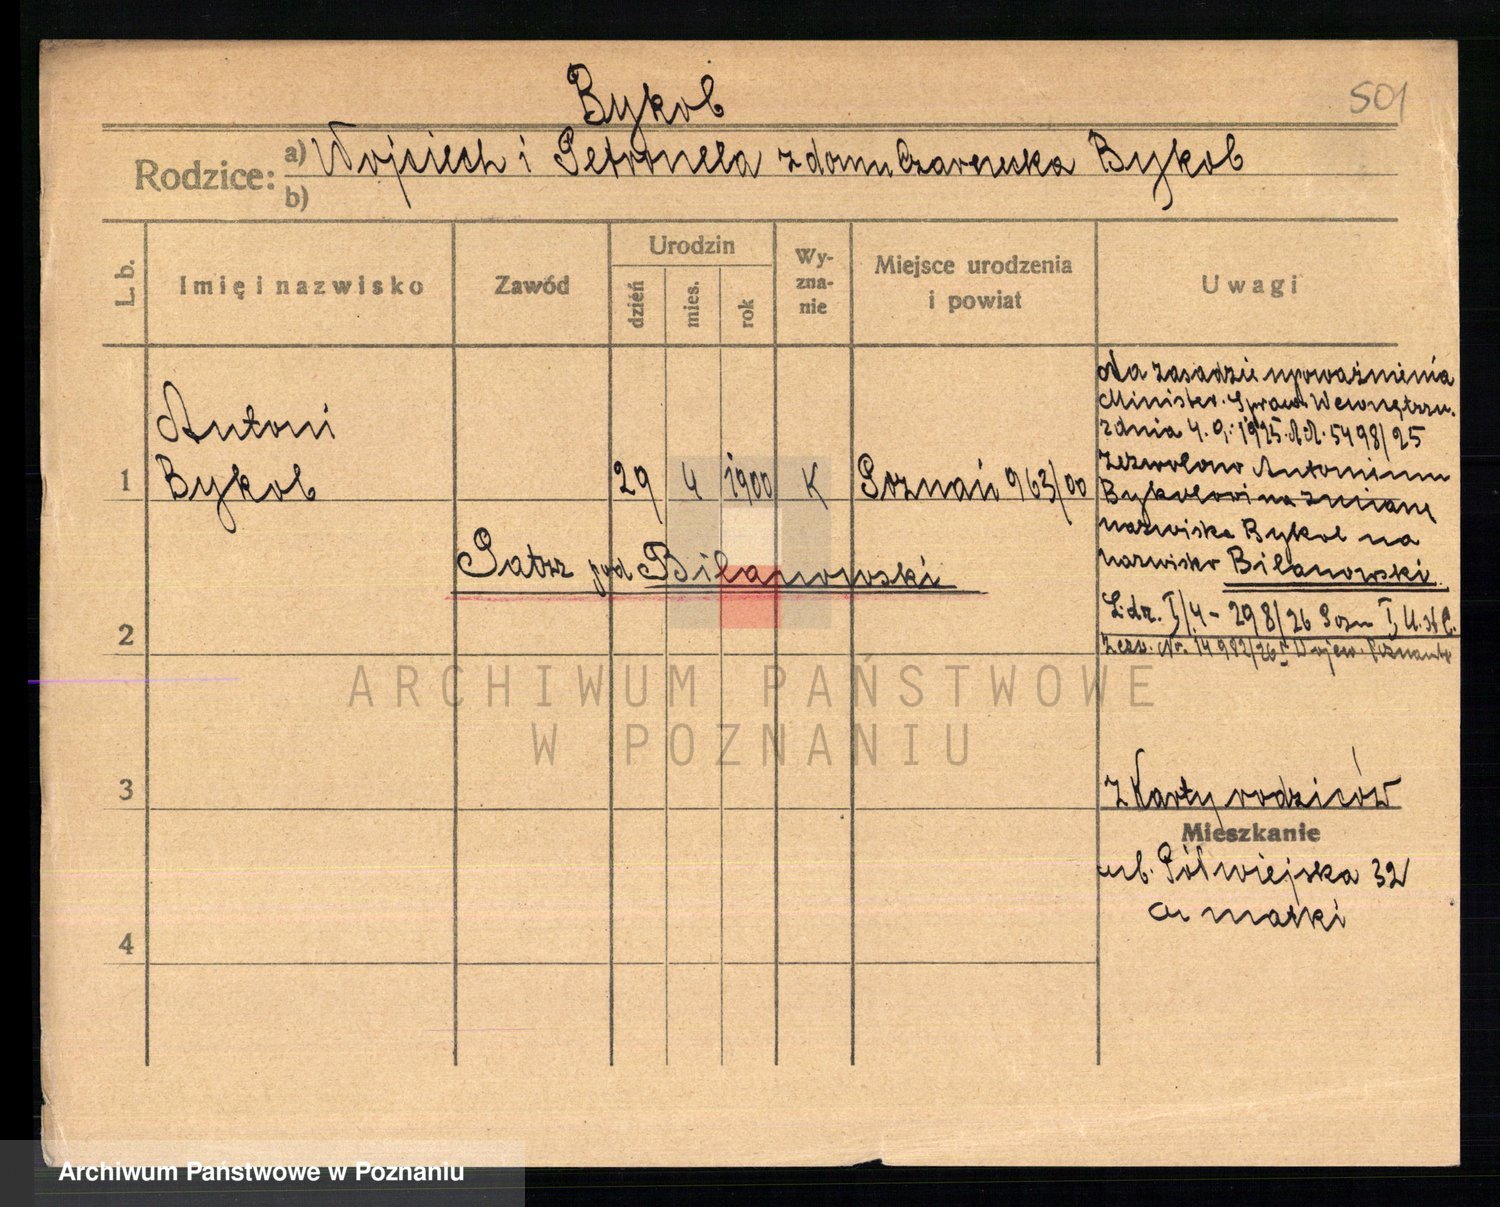 Bykob
501
Rodzice: a) Wojciech i Petronela z domu Czarnecka Bykob
b)
L. b.
Imię i nazwisko
Zawód
Urodzin
dzień
mies.
rok
Wy-
zna-
nie
Miejsce urodzenia
i powiat
Uwagi
1
Antoni
Bykob
29
4
1900
K
Poznań 963/00
Patrz pod Bilanowski
2
3
4
Na zasadzie upoważnienia
Minister. Spraw Wewnętrzn.
z dnia 4.9.1925 5498/25
zezwolono Antoniemu
Bykobowi na zmianę
nazwiska Bykob na
nazwisko Bilanowski.
L.dz. I/4 - 298/26 Pozn I,
Zezw. Nr. 14982/26 Wojew.
z Karty rodziców
Mieszkanie
ul. Półwiejska 32
u matki
ARCHIWUM PAŃSTWOWE
W POZNANIU
Archiwum Państwowe w Poznaniu